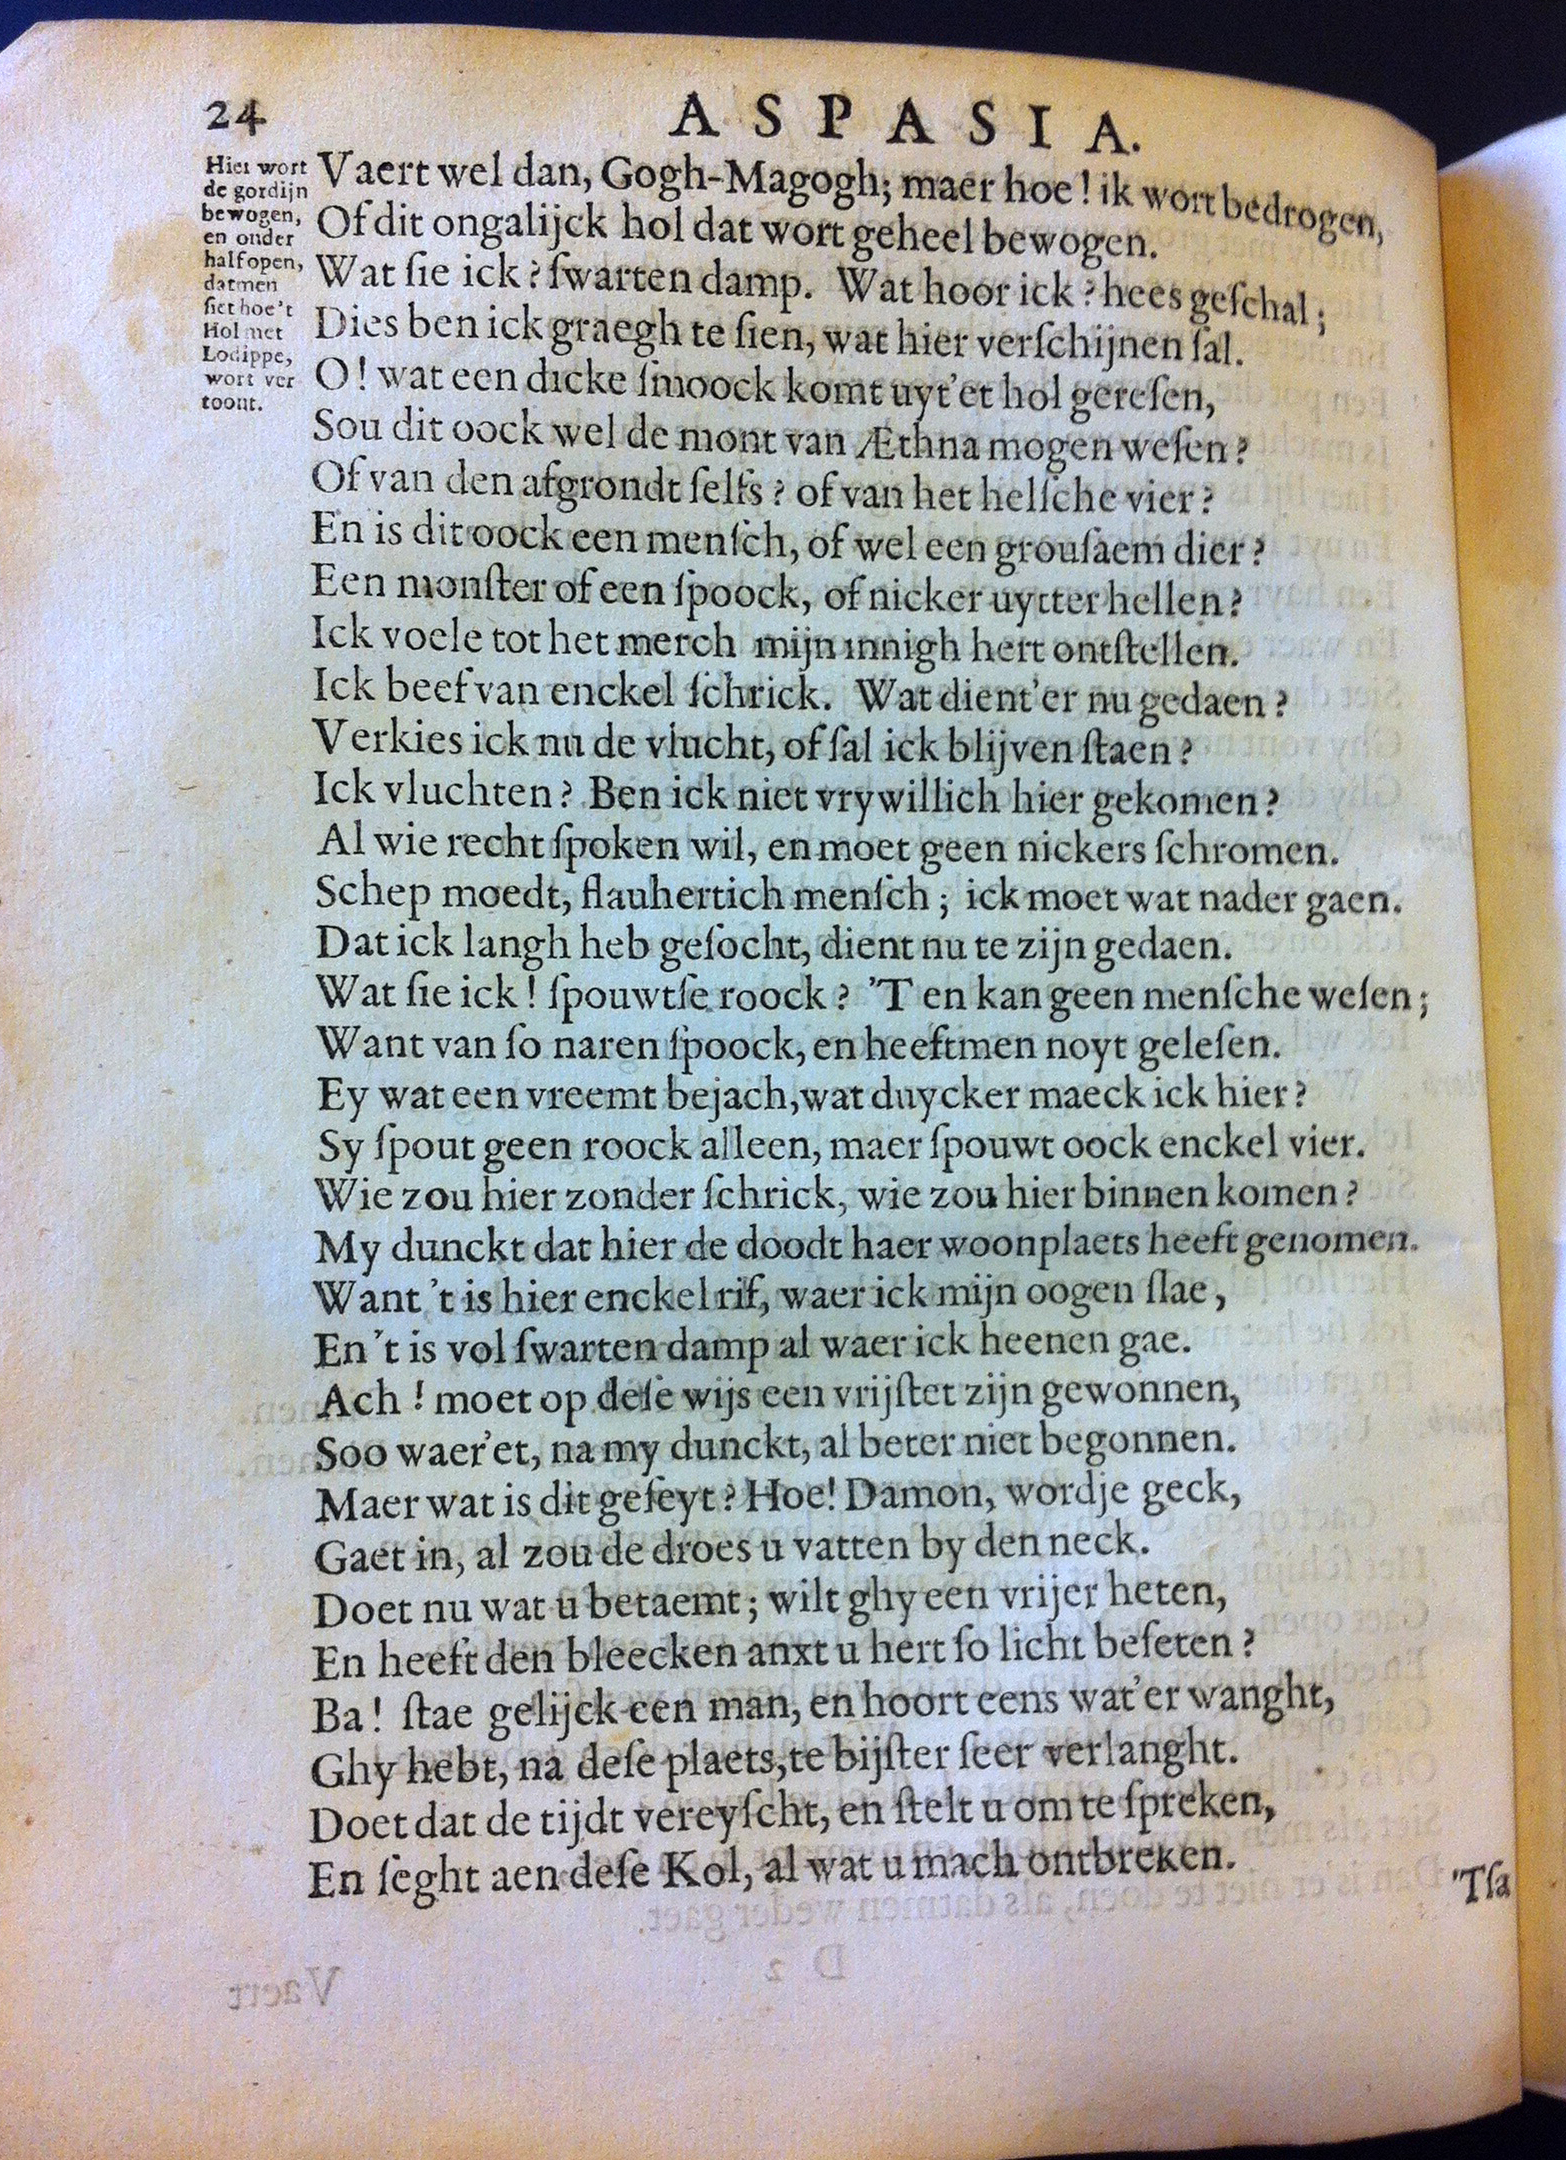 24
ASPASIA.
Hier wort
de gordijn
bewogen,
en onder
half open,
datmen
ſiet hoe't
Hol met
Lodippe,
wort ver
toont.
Vaert wel dan, Gogh-Magogh; maer hoe! ik wort bedrogen,
Of dit ongalijck hol dat wort geheel bewogen.
Wat ſie ick? ſwarten damp. Wat hoor ick? hees geſchal;
Dies ben ick graegh te ſien, wat hier verſchijnen ſal.
O! wat een dicke ſmoock komt uyt'et hol gereſen,
Sou dit oock wel de mont van Æthna mogen weſen?
Of van den afgrondt ſelfs? of van het helſche vier?
En is dit oock een menſch, of wel een grouſaem dier?
Een monſter of een ſpoock, of nicker uytter hellen?
Ick voele tot het merch mijn innigh hert ontſtellen.
Ick beef van enckel ſchrick. Wat dient'er nu gedaen?
Verkies ick nu de vlucht, of ſal ick blijven ſtaen?
Ick vluchten? Ben ick niet vrywillich hier gekomen?
Al wie recht ſpoken wil, en moet geen nickers ſchromen.
Schep moedt, flauhertich menſch; ick moet wat nader gaen.
Dat ick langh heb geſocht, dient nu te zijn gedaen.
Wat ſie ick! ſpouwtſe roock? 'T en kan geen menſche weſen;
Want van ſo naren ſpoock, en heeftmen noyt geleſen.
Ey wat een vreemt bejach, wat duycker maeck ick hier?
Sy ſpout geen roock alleen, maer ſpouwt oock enckel vier.
Wie zou hier zonder ſchrick, wie zou hier binnen komen?
My dunckt dat hier de doodt haer woonplaets heeft genomen.
Want 't is hier enckel rif, waer ick mijn oogen ſlae,
En 't is vol ſwarten damp al waer ick heenen gae.
Ach! moet op deſe wijs een vrijſter zijn gewonnen,
Soo waer'et, na my dunckt, al beter niet begonnen.
Maer wat is dit geſeyt? Hoe! Damon, wordje geck,
Gaet in, al zou de droes u vatten by den neck.
Doet nu wat u betaemt; wilt ghy een vrijer heten,
En heeft den bleecken anxt u hert ſo licht beſeten?
Ba! ſtae gelijck een man, en hoort eens wat'er wanght,
Ghy hebt, na deſe plaets, te bijſter ſeer verlanght.
Doet dat de tijdt vereyſcht, en ſtelt u om te ſpreken,
En ſeght aen deſe Kol, al wat u mach ontbreken.
'Tſa